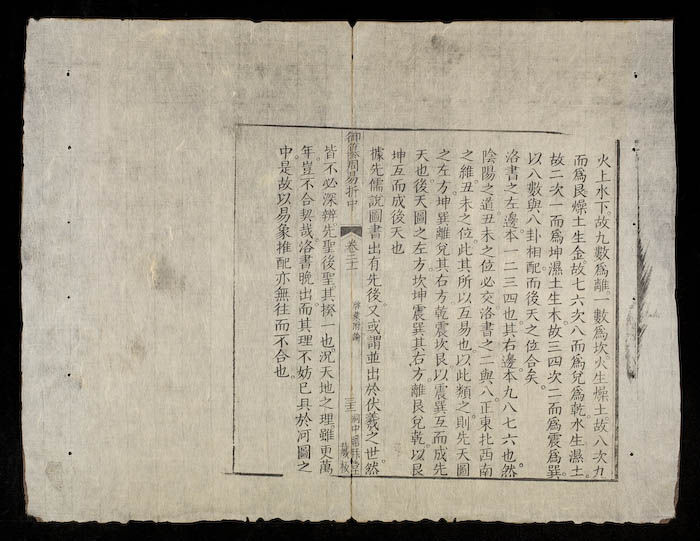 火上水下故九數爲離一數爲坎火生燥土故八次九
而爲艮燥土生金故七六次八而爲兌爲乾水生濕土
故二次一而爲坤濕土生木故三四次二而爲震爲巽
以八數與八卦相配而後天之位合矣
洛書之左邊本一二三四也其右邊本九八七六也然
陰陽之道丑未之位必交洛書之二與八正東北西南
之維丑未之位此其所以互易也以此類之則先天圖
之左方坤巽離兌其右方乾震坎艮以震巽互而成先
天也後天圖之左方坎坤震巽其右方離艮兌乾以艮
坤互而成後天也
據先儒說圖書出有先後又或謂並出於伏羲之世然
御纂周易折中
卷二十一
啓蒙附論
皆不必深辨先聖後聖其揆一也況天地之理雖更萬
年豈不合契哉洛書晚出而其理不妨已具於河圖之
中是故以易象推配亦無往而不合也